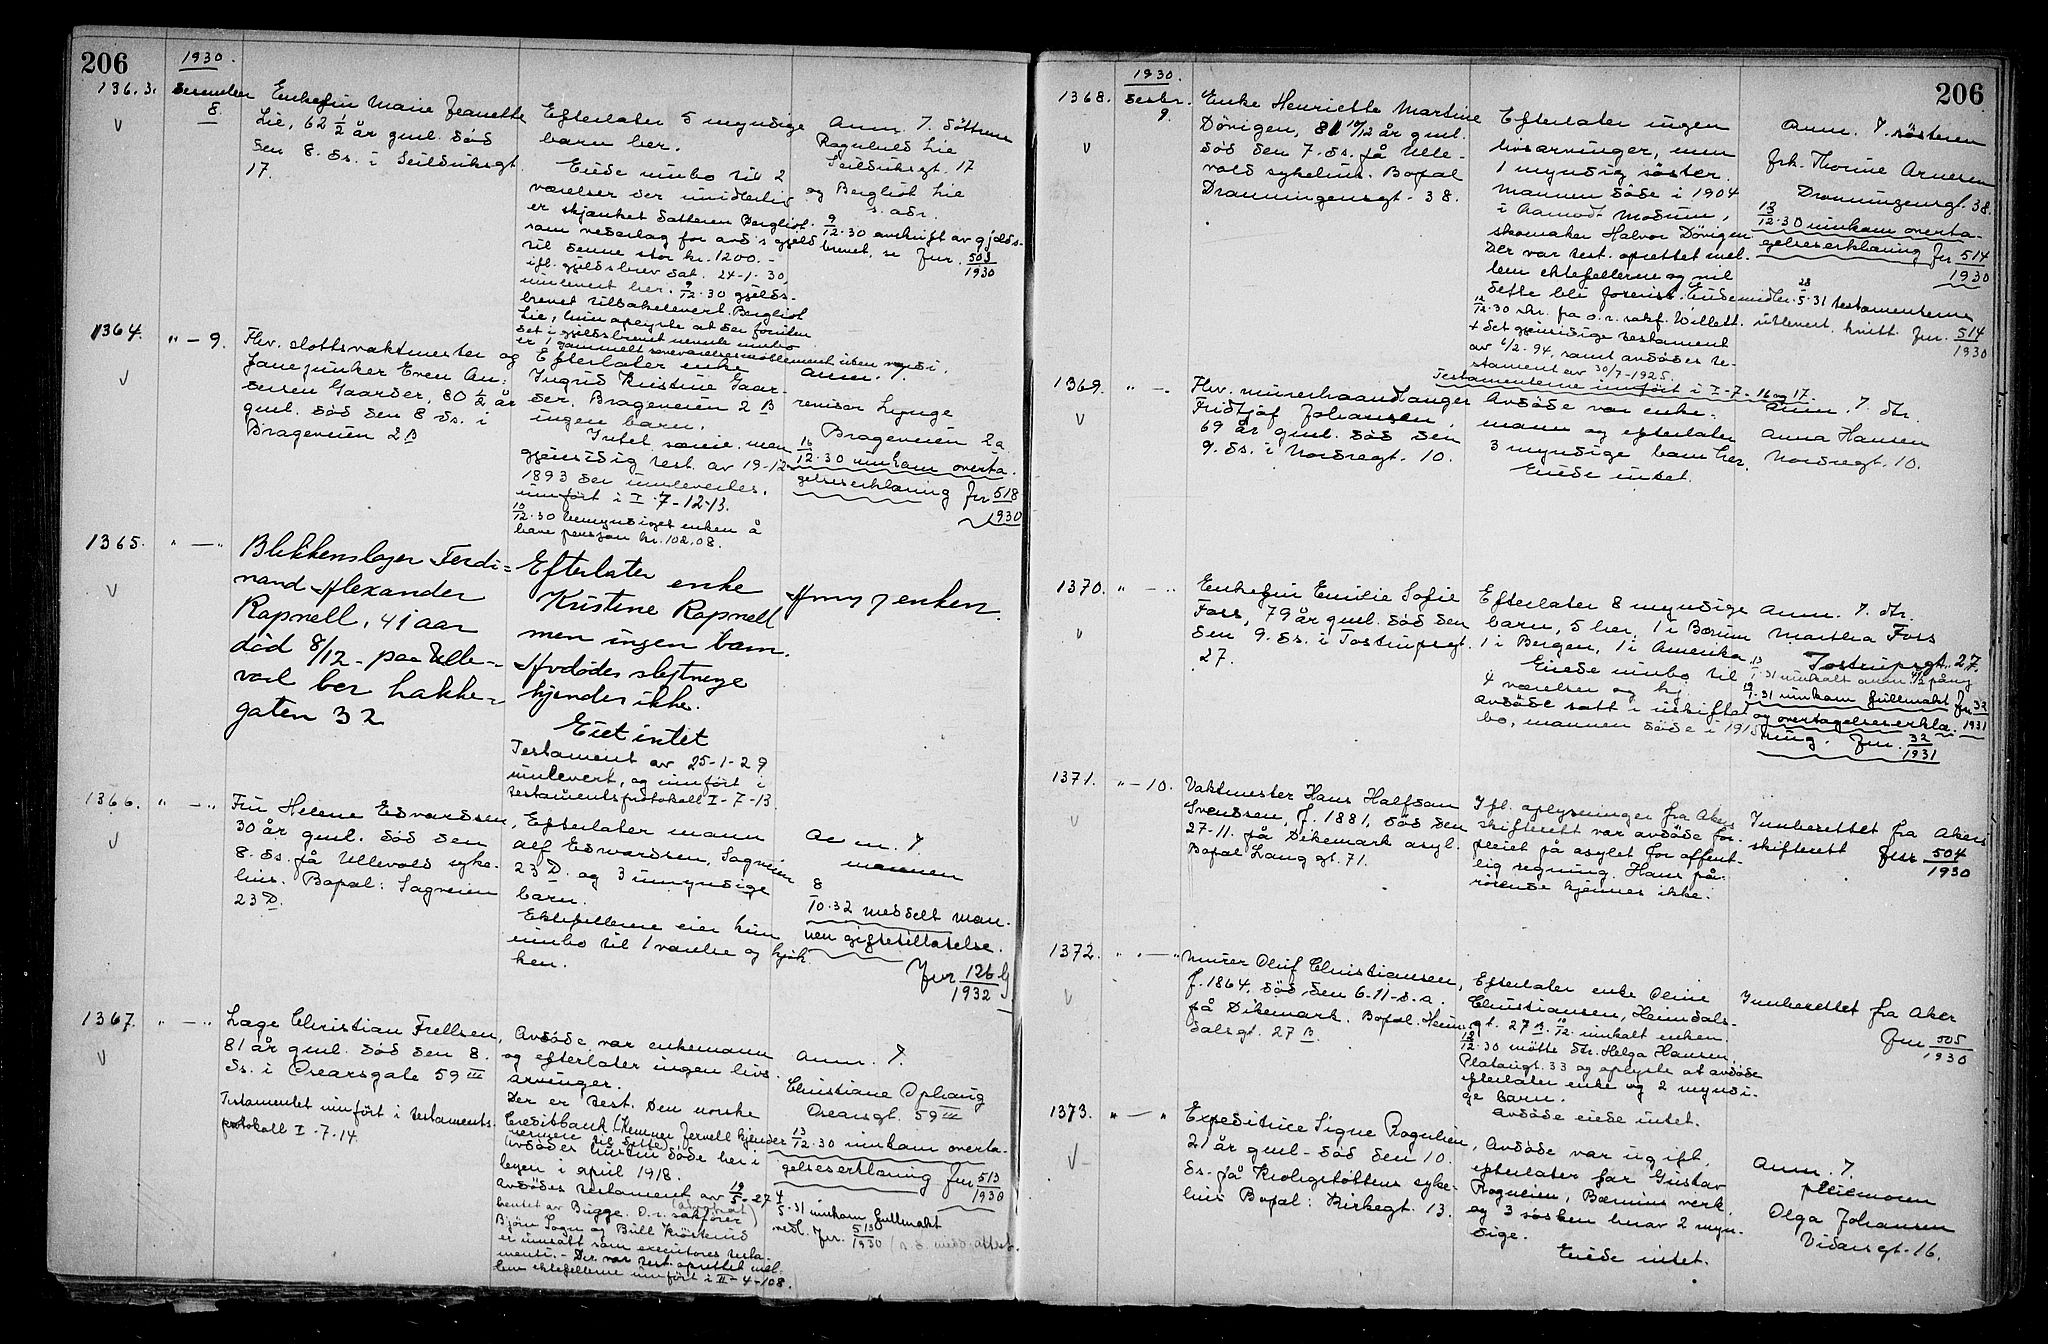 206
1930.
1363.
Desember
8.
Enkefru Marie Jeanette
Lie, 62 1/2 år gml. død
den 8. ds. i Seilduksgt.
17.
Efterlater 5 myndige
barn her.
Eiede innbo til 2
værelser der imidlertid
er skjænket datteren Bergliot
som vederlag for avd's gjeld
til denne stor kr. 1200.-
ifl. gjeldsbrev dat. 24-1-30,
innlevert her. 9/12.30 gjelds-
brevet tilbakelevert Bergliot
Lie, hun oplyste at den foruten
det i gjeldsbrevet nevnte innbo
er 1 gammelt soveværelsesmøblement uten verdi.
Anm. 7. døttrene
Ragnhild Lie
Seilduksgt. 17
og Bergliot Lie
s. adr.
9/12.30 avskrift av gjelds-
brevet, se Jnr. 503/1930
1364.
" - 9.
Fhv. slottsvaktmester og
fanejunker Even An-
dersen Gaarder, 80 1/2 år
gml. død den 8 ds. i
Brageveien 2 B
Efterlater enke
Ingrid Kristine Gaar-
der, Brageveien 2 B
ingen barn.
Intet særeie, men
gjensidig test. av 19-12-
1893 der innleveres,
innført i I-7-12-13.
10/12.30 bemyndiget enken å
heve pensjon kr. 102.08.
Anm. 7.
revisor Lynge
Brageveien 2a
16/12.30 innkom overta-
gelseserklæring Jnr 518/1930
1365.
" - "
Blikkenslager Ferdi=
nand Alexander
Rapnell, 41 aar
død 8/12 - paa Ulle-
vaal bor Hakke-
gaten 32
Efterlater enke
Kristine Rapnell
men ingen barn.
Avdødes slegtninge
kjendes ikke.
Eiet intet
Testament av 25-1-29
innlevert, og innført i
testamentsprotokoll I-7-13.
Anm 7 enken.
1366.
" - "
Fru Helene Edvardsen,
30 år gml. død den
8. ds. på Ullevåls syke-
hus. Bopæl: Sagveien
23 D.
Efterlater mann
Alf Edvardsen, Sagveien
23 D. og 3 umyndige
barn.
Ektefellene eier kun
innbo til 1 værelse og kjøk-
ken.
Anm. 7
mannen
8/10.32 meddelt man-
nen giftetillatelse.
Jnr 126 G/1932
1367.
" - "
Læge Christian Frellsen,
81 år gml. død den 8.
ds. i Oscarsgate 59 III
Testamentet innført i testaments-
protokoll I-7-14.
Avdøde var enkemann
og efterlater ingen livs-
arvinger.
Der er test. Den norske
Creditbank (Kemner Jervell kjender
nærmere til dette)
Avdødes hustru døde her i
byen i april 1918.
Avdødes testament av 19/5-27
bentet av Bugge. O.r.sakfører (advokat)
Bjørn Sogn og Bull
er innsatt som executores testa-
menti. - Der var test. oprettet mel-
lem ektefellene innført i II-4-108.
Anm. 7.
Christiane Ophaug
Oscarsgt. 59 III
13/12.30 innkom overta-
gelseserklæring Jnr 513/1930
4/5.31 innkom fullmakt
vedl. Jnr. 513/1930
206
1930.
1368.
Desbr.
9.
Enke Henriette Martine
Dövigen, 81 10/12 år gml.
død den 7. ds. på Ulle-
vål sykehus. Bopæl
Dronningensgt. 38.
Efterlater ingen
livsarvinger, men
1 myndig søster.
Mannen døde i 1904
i Aamodt Modum,
skomaker Halvor Dövigen
Der var test. oprettet mel-
lem ektefellene og vil
dette bli forevist. Eiede midler.
12/12.30 skr. fra o.r. sakf. Willett.
+ det gjensidige testament
av 6/2-94, samt avdødes te-
stament av 30/7-1925.
Testamentene innført i I-7-16 og 17.
Anm. 7. søsteren
frk. Thorine Arnesen
Dronningensgt. 38.
12/12.30 innkom overta-
gelseserklæring Jnr 514/1930
28/5.31 testamentene
utlevert, kvitt. Jnr. 514/1930
1369.
" - "
Fhv. murerhaandlanger
Fridtjof Johansen,
69 år gml. død den
9. ds. i Nordregt. 10.
Avdøde var enke-
mann og efterlater
3 myndige barn her.
Eiede intet.
Anm. 7. dtr.
Anna Hansen
Nordregt. 10.
1370.
" - "
Enkefru Emilie Sofie
Foss, 79 år gml. død den
den 9. ds. i Tostrupsgt.
27.
Efterlater 8 myndige
barn, 5 her, 1 i Bærum
1 i Bergen, 1 i Amerika
Eiede innbo til
4 værelser og kj.
Avdøde satt i uskiftet
bo, mannen døde i 1915
Anm. 7. dtr.
Martha Foss
Tostrupsgt. 27.
13/1.31 innkalt anm.
19/1.31 innkom fullmakt Jnr 32/1931
og overtagelseserklæ-
ring. Jnr. 32/1931
1371.
" - 10.
Vaktmester Hans Halfdan
Svendsen, f. 1881, død den
27-11. på Dikemark asyl.
Bopæl Lang gt. 71.
Ifl. oplysninger fra Akers
skifterett var avdøde for-
pleiet på asylet for offent-
lig regning. Hans på-
rørende kjennes ikke.
Innberettet fra Akers
skifterett Jnr 504/1930
1372.
" - "
Murer Oluf Christiansen,
f. 1864, død den 6-11-d.a.
på Dikemark. Bopæl. Heim-
dalsgt. 27 B.
Efterlater enke Oline
Christiansen, Heimdals-
gt. 27 B. 10/12 innkalt enken.
12/12.30 møtte dtr. Helga Hansen,
Platougt. 33 og oplyste at avdøde
efterlater enke og 2 myndi-
ge barn.
Avdøde eiede intet.
Innberettet fra Aker
Jnr 505/1930
1373.
" - "
Expeditrice Signe Rognlien,
21 år gml. død den 10.
ds. på Krohgstøttens syke-
hus Bopæl: Kirkegt. 13.
Avdøde var ugift,
efterlater far Gustav
Rognlien, Bærums verk.
og 3 søsken hvorav 2 myn-
dige.
Eiede intet.
Anm. 7.
pleiemoren
Olga Johansen
Vidarsgt. 16.